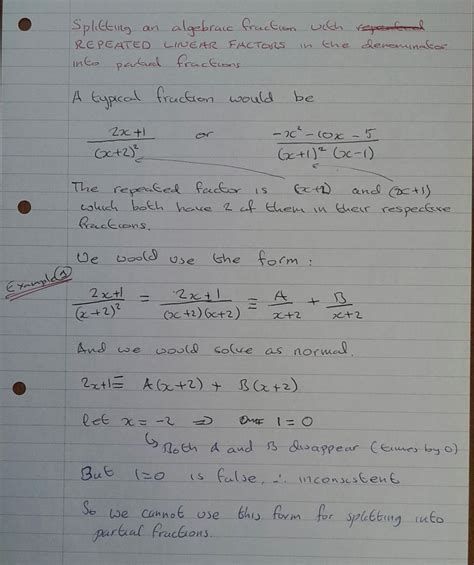 Splitting an algebraic fraction with repeated
REPEATED LINEAR FACTORS in the denominator
into partial fractions
A typical fraction would be
2x+1/(x+2)² or -x²-10x-5/(x+1)²(x-1)
The repeated factor is (x+2) and (x+1)
which both have 2 of them in their respective
fractions.
We would use the form :
Example ①
2x+1/(x+2)² = 2x+1/(x+2)(x+2) ≡ A/x+2 + B/x+2
And we would solve as normal.
2x+1 ≡ A(x+2) + B(x+2)
let x = -2 ⇒ 1=0
↳ Both A and B disappear (times by 0)
But 1=0 is false, ∴ inconsistent
So we cannot use this form for splitting into
partial fractions.